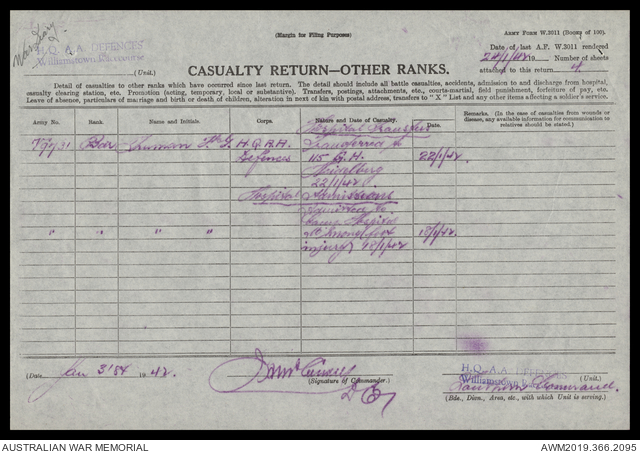 (Margin for Filing Purposes)
ARMY FORM W.3011 (Books of 100).
H.Q. A.A. DEFENCES
Williamstown Racecourse
(Unit.)
Date of last A.F. W.3011 rendered
24/1/42 Number of sheets
attached to this return 4
CASUALTY RETURN—OTHER RANKS.
Detail of casualties to other ranks which have occurred since last return. The detail should include all battle casualties, accidents, admission to and discharge from hospital,
casualty clearing station, etc. Promotion (acting, temporary, local or substantive). Transfers, postings, attachments, etc., courts-martial, field punishment, forfeiture of pay, etc.
Leave of absence, particulars of marriage and birth or death of children, alteration in next of kin with postal address, transfers to "X" List and any other items affecting a soldier's service.
Army No. Rank. Name and Initials. Corps. Nature and Date of Casualty. Date of Casualty. Remarks. (In the case of casualties from wounds or disease, any information available for communication to relatives should be stated.)
Hospital Transfer
Bdr H.Q.A.A. Transferred to
Defences 115 G.H. 22/1/42
Heidelberg
22/1/42
Hospital Admissions
Admitted to
Camp Hospital
" " " " 18/1/42.
injury 18/1/42
(Date Jan 31st 1942.
(Signature of Commander.)
H.Q. A.A. DEFENCES
Williamstown Racecourse
(Unit.)
Southern Command.
(Bde., Divn., Area, etc., with which Unit is serving.)
AUSTRALIAN WAR MEMORIAL
AWM2019.366.2095